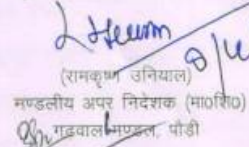 (रामकृष्ण उनियाल)
मण्डलीय अपर निदेशक (मा0शि0)
गढ़वाल मण्डल, पौड़ी